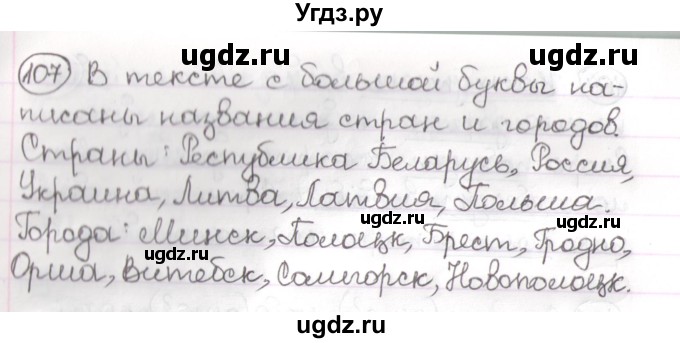 Угдз.ру
ugdz.ru ugdz.ru
107 В тексте с большой буквы на-
писаны названия стран и городов.
Страны: Республика Беларусь, Россия,
ugdz.ru
Украина, Литва, Латвия, Польша.
ugdz.ru
Города: Минск, Полоцк, Брест, Гродно,
Орша, Витебск, Солигорск, Новополоцк.
ugdz.ru ugdz.ru
ugdz.ru